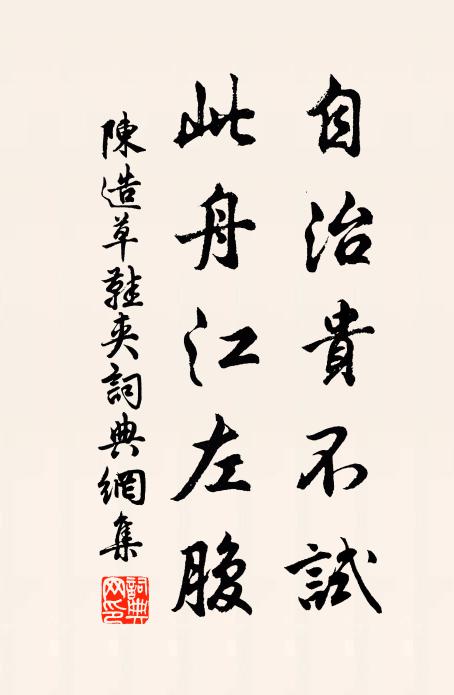 自治貴不試
此舟江左腹
陳造草鞋夾詞典網集
詞典網印